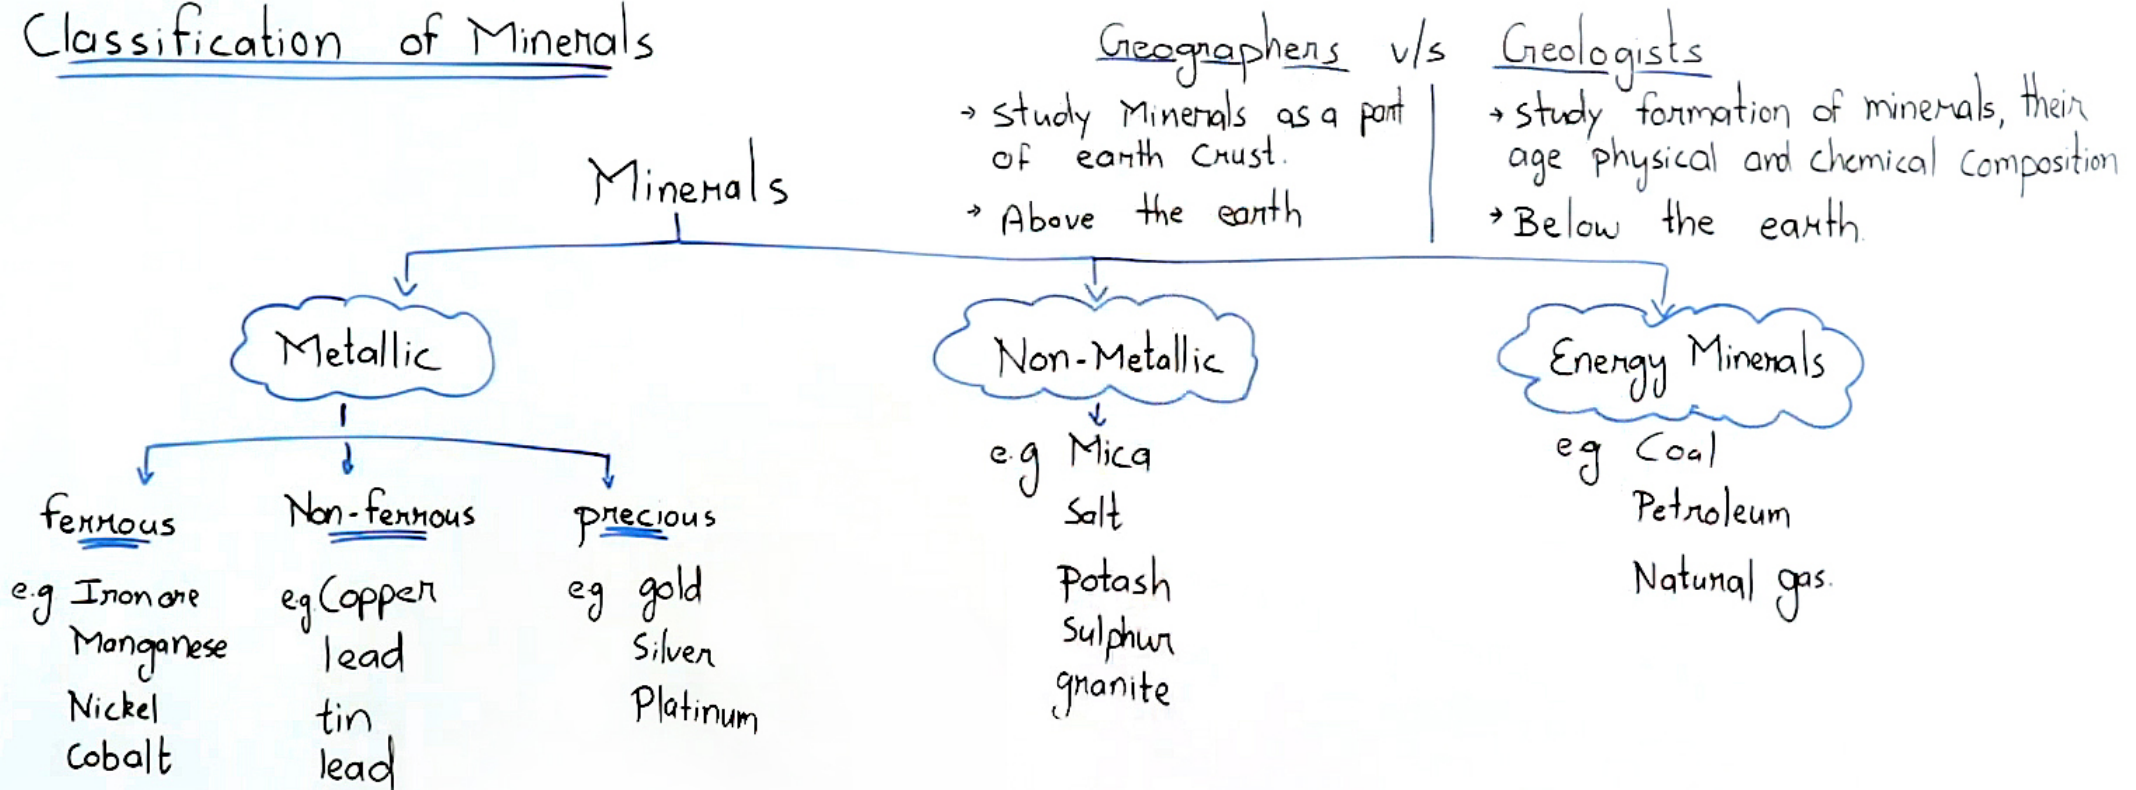 Classification of Minerals
Geographers v/s Geologists
→ Study Minerals as a part
of earth Crust.
→ Above the earth
→ Study formation of minerals, their
age physical and chemical Composition
→ Below the earth.
Minerals
Metallic
Non-Metallic
Energy Minerals
ferrous
Non-ferrous
precious
e.g Iron ore
Manganese
Nickel
Cobalt
eg Copper
lead
tin
lead
eg gold
Silver
Platinum
e.g Mica
Salt
Potash
Sulphur
granite
eg Coal
Petroleum
Natural gas.